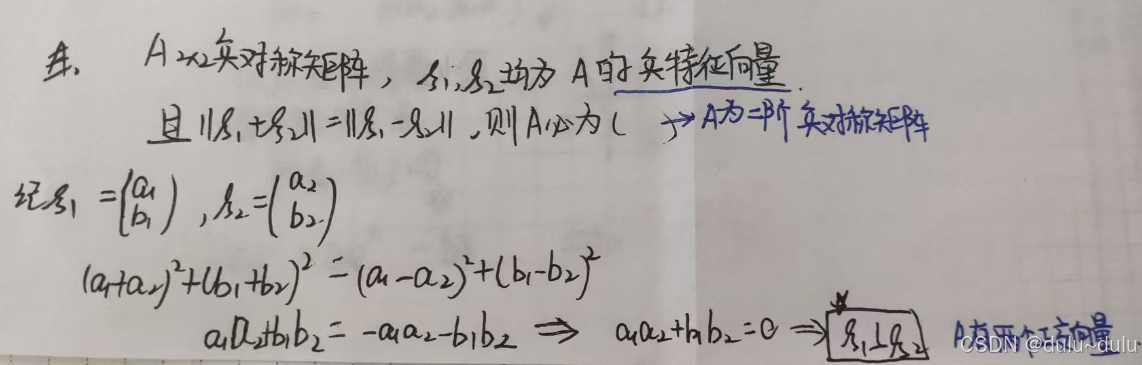 A 2×2实对称矩阵, ξ₁,ξ₂均为A的实特征向量.
且||ξ₁+ξ₂||=||ξ₁-ξ₂||,则A必为( )→A为二阶实对称矩阵
记ξ₁=(a₁ b₁),ξ₂=(a₂ b₂)
(a₁+a₂)²+(b₁+b₂)²=(a₁-a₂)²+(b₁-b₂)²
a₁a₂+b₁b₂=-a₁a₂-b₁b₂ ⇒ a₁a₂+b₁b₂=0 ⇒ ξ₁⊥ξ₂ A有两个正交向量.
CSDN @dulu~dulu